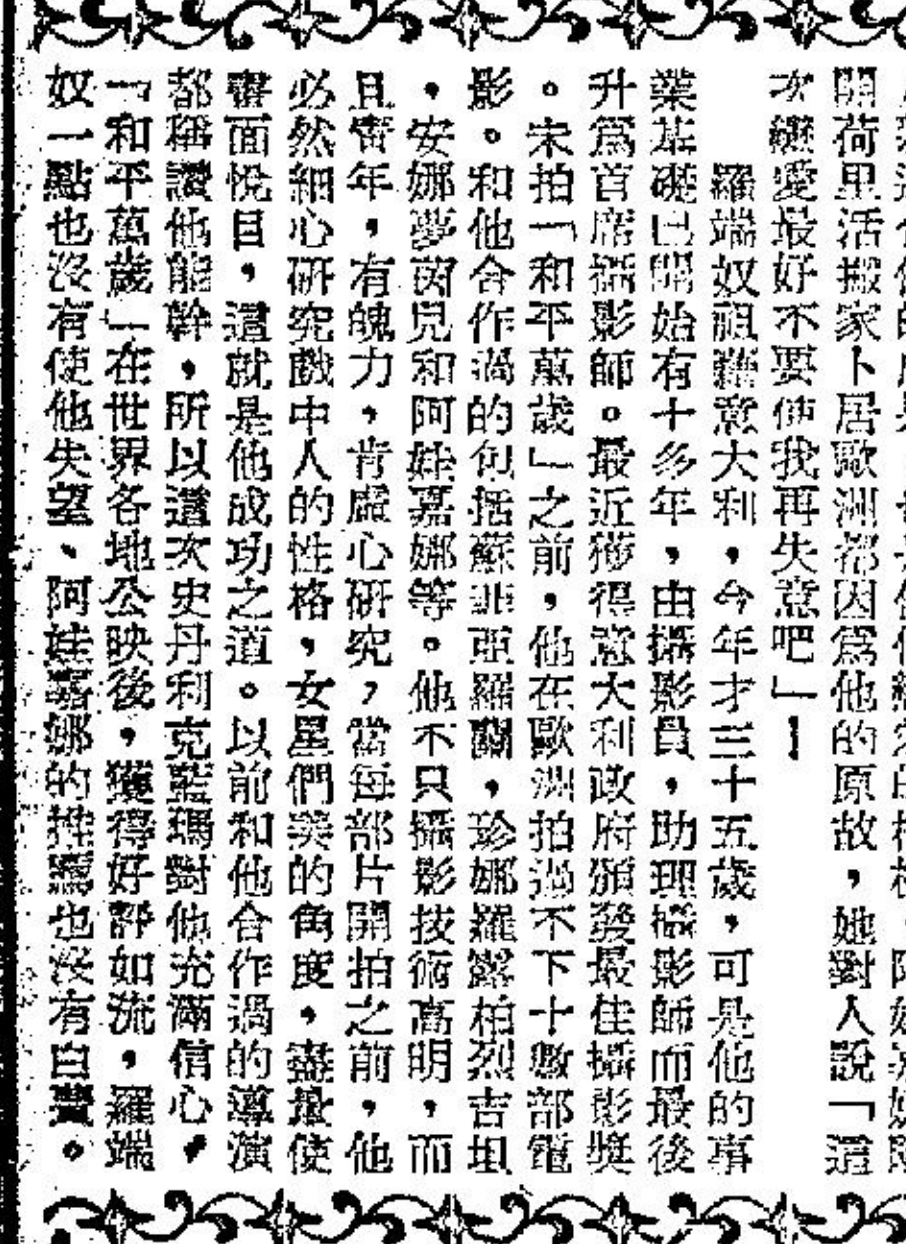 開荷里活搬家卜居歐洲都因爲他的原故，她對人說「這
次戀愛最好不要使我再失意吧」！
羅端奴祖籍意大利，今年才三十五歲，可是他的事
業基礎已開始有十多年，由攝影員，助理攝影師而最後
升爲首席攝影師。最近獲得意大利政府頒發最佳攝影獎
。未拍「和平萬歲」之前，他在歐洲拍過不下十數部電
影。和他合作過的包括蘇菲亞羅蘭，珍娜羅露柏烈吉坦
，安娜夢茵兒和阿娃嘉娜等。他不只攝影技術高明，而
且當年，有魄力，肯虛心研究，當每部片開拍之前，他
必然細心研究戲中人的性格，女星們美的角度，盡量使
畫面悅目，這就是他成功之道。以前和他合作過的導演
都稱讚他能幹，所以這次史丹利克藍瑪對他充滿信心，
「和平萬歲」在世界各地公映後，獲得好評如流，羅端
奴一點也沒有使他失望、阿娃嘉娜的推薦也沒有白費。